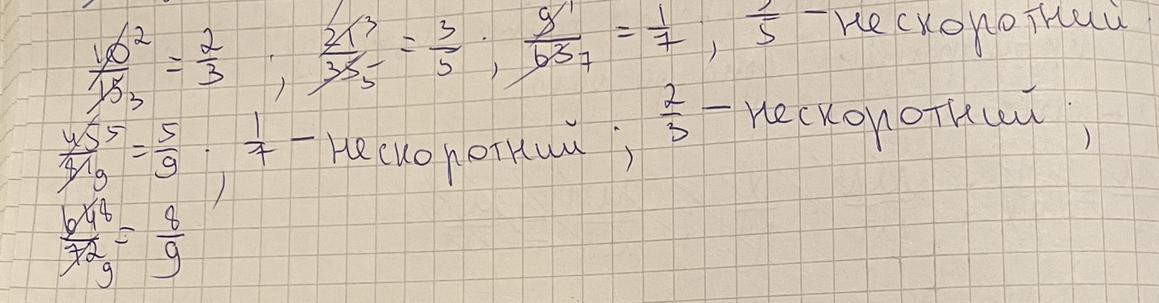 10/15 = 2/3 ; 21/35 = 3/5 ; 9/63 = 1/7 ; 3/5 – нескоротний
45/81 = 5/9 ; 1/7 – нескоротний ; 2/3 – нескоротний ;
64/72 = 8/9